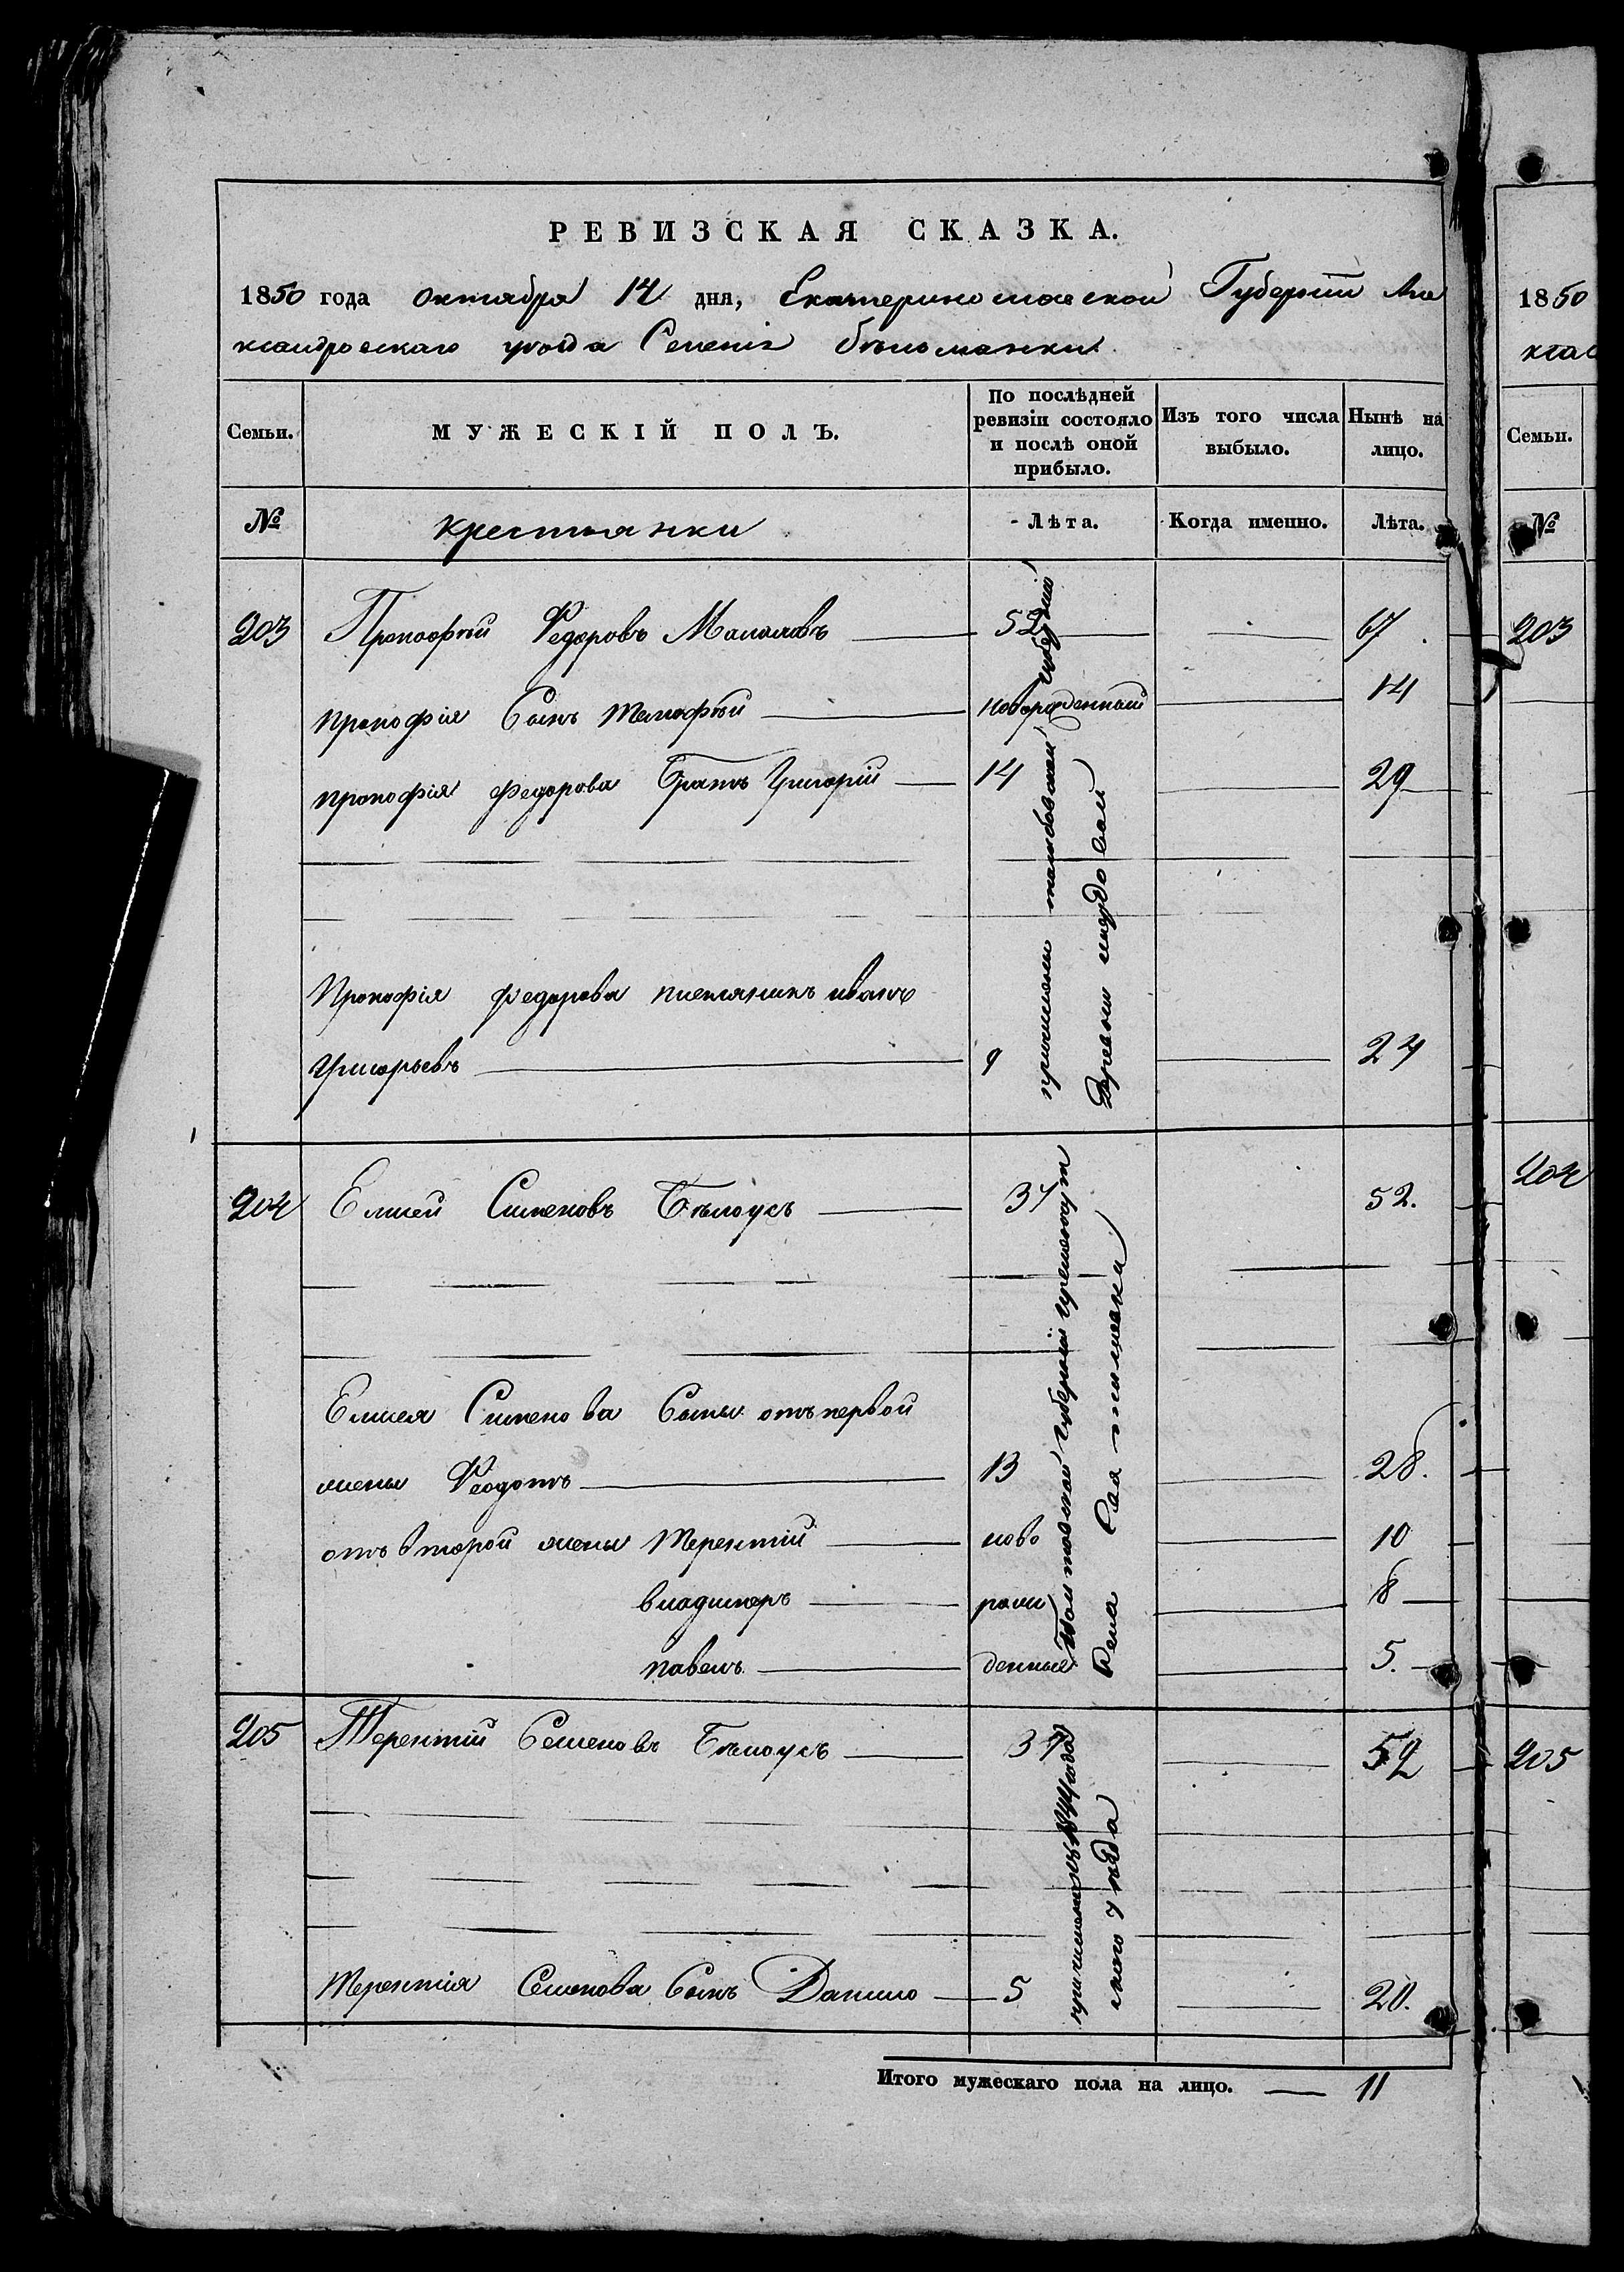 РЕВИЗСКАЯ СКАЗКА.
1850 года октября 14 дня, Екатеринославской Губернии Але
ксандровскаго уѣзда Селенія Бѣломанки
Семьи.
МУЖЕСКІЙ ПОЛЪ.
По послѣдней ревизіи состояло и послѣ оной прибыло.
Изъ того числа выбыло.
Нынѣ на лицо.
№
крестьянки
Лѣта.
Когда именно.
Лѣта.
203 Прокофѣй Федоровъ 52 67
Прокофія Сынъ Тимофѣй новорожденный 14
Прокофія Федорова Братъ Григорій 14 29
Прокофія Федорова племяникъ иванъ
Григорьевъ 9 24
причислены тамбовской губерніи
Деревни
204 Елисей Сименовъ Бѣлоусъ 37 52.
Елисея Сименова Сыны отъ первой
жены Феодотъ 13 28.
отъ второй жены Терентій ново 10
владимеръ рож 8
павелъ денные 5.
Полтавской губерніи кременчуг
205 Терентій Семеновъ Бѣлоусъ 37 52
Терентія Семенова Сынъ Данило 5 20.
уѣзда
Итого мужескаго пола на лицо. 11
1850
Семьи.
№
203
204
205